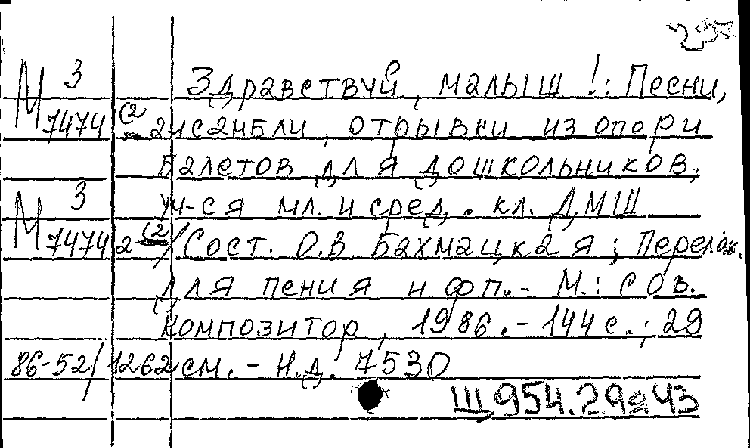 М 3 Здравствуй, малыш!: Песни,
7474 (2 ансамбли, отрывки из опер и
балетов для дошкольников,
М 3 уч-ся мл. и сред. кл. ДМШ
7474 2 (2) / Сост. О.В Бахмацкая; Перелож.
для пения и фп. - М.: Сов.
композитор, 1986. - 144 с.; 29
86-52/1262 см. - Н.д. 7530
Щ954.29я43